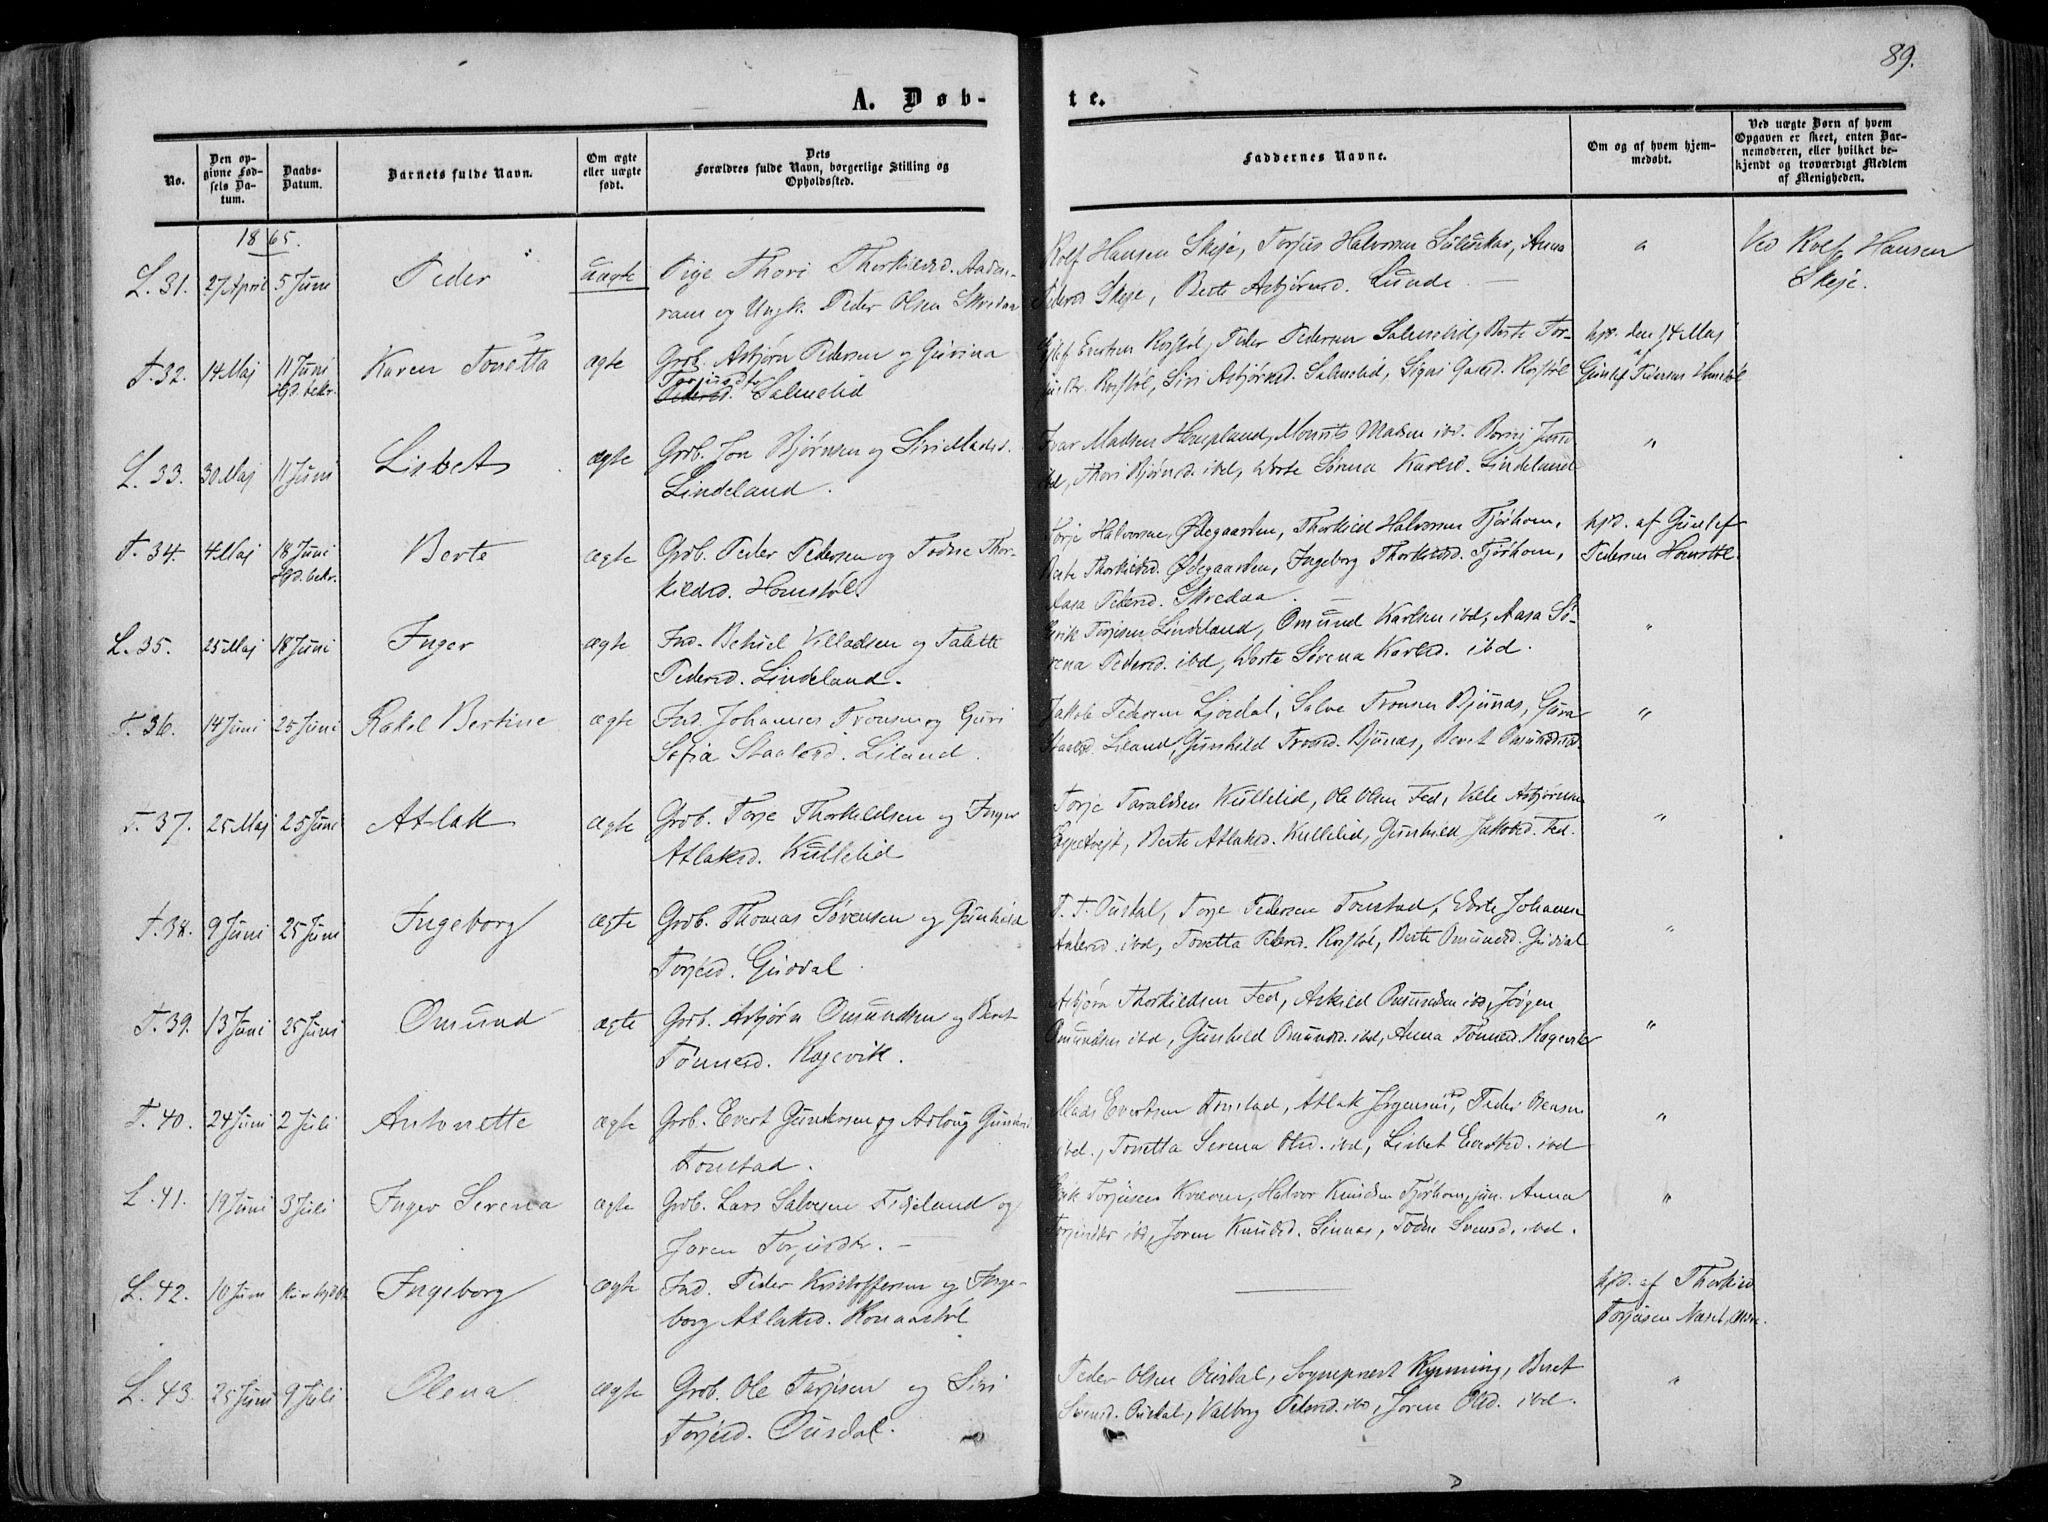 89.
A. Døb-
te.
No.
Den op-
givne Fød-
sels Da-
tum.
Daabs-
Datum.
Barnets fulde Navn.
Om ægte
eller uægte
født.
Dets
Forældres fulde Navn, borgerlige Stilling og
Opholdssted.
Faddernes Navne.
Om og af hvem hjem-
medøbt.
Ved uægte Børn af hvem
Opgaven er skeet, enten Bar-
nemoderen, eller hvilket be-
kjendt og troværdigt Medlem
af Menigheden.
1865.
L. 31. 27 April 5 Juni Peder uægte Pige Thori Thorkildsd. Aaden-
ram og Ungk. Peder Olsen Skredaa
Rolf Hansen Skeje, Torjus Halvorsen Suluskar, Anna
Pedersd Skeje, Berte Asbjørnsd. Lunde. —
"
Ved Rolf Hansen
Skeje.
T. 32. 14 Maj 11 Juni Karen Tonetta ægte Grdb. Asbjørn Pedersen og Gurina
dgd. bekr. Torjusdtr
Pedersd. Salmelid
Evertsen Rosstøl, Peder Pedersen Salmelid, Berte Tor-
Rosstøl, Siri Asbjørnsd. Salmelid, Signi Rosstøl
hjd. den 14 Maj
af
Gunlef Pedersen Homstøl
L. 33. 30 Maj 11 Juni Lisbet ægte Grdb. Jon Bjørnsen og Siri Madsd.
Lindeland.
Ivar Madsen Haughland, Mourits Madsen ibd.
ibd, Thori Bjørnsd. ibd, Dorte Sørena Karlsd. Lindeland
"
T. 34. 4 Maj 18 Juni Berte ægte Grdb. Peder Pedersen og Todne Thor-
dgd. bekr. kildsd. Homstøl.
Halvorsen Ødegaarden, Thorkild Halvorsen Tjørhom,
Berte Thorkildsd. Ødegaarden, Ingeborg Thorkildsd. Tjørhom,
Aasa Pedersd. Skredaa. —
hjd. af Gunlef
Pedersen Homstøl
L. 35. 25 Maj 18 Juni Inger ægte Ind. Betuel Villadsen og Talette
Pedersd. Lindeland.
Erik Torjesen Lindeland, Omund Karlsen ibd, Aasa Sø-
rena Pedersd. ibd, Dorte Sørena Karlsd. ibd.
"
T. 36. 14 Juni 25 Juni Rakel Bertine ægte Ind. Johannes Tronsen og Guri
Sofia Staalesd. Liland.
Jakob Pedersen Ljosdal, Salve Tronsen Bjunas, Gura
Staalesd. Liland, Gunhild Tronsd. Bjunas, Beret Omundsd.
"
T. 37. 25 Maj 25 Juni Atlak ægte Grdb. Torje Thorkildsen og Inger
Atlaksd. Kullelid
Torje Taraldsen Kullelid, Ole Olsen Fed, Velle Asbjørnsen
Espetvejt, Berte Atlaksd. Kullelid, Gunhild Jakobsd. Fed.
"
T. 38. 9 Juni 25 Juni Ingeborg ægte Grdb. Thomas Sørensen og Gunhild
Torjesd. Guddal.
T. T. Ousdal, Torje Pedersen Tonstad, Dorte Johanna
ibd, Tonetta Pedersd. Rosstøl, Berte Omundsd. Guddal
"
T. 39. 13 Juni 25 Juni Omund ægte Grdb. Asbjørn Omundsen og Beret
Tønnesd. Røgevik.
Asbjørn Thorkildsen Fed, Askild Omundsen ibd, Jørgen
Omundsen ibd, Gunhild Omundsd. ibd, Anna Tønnesd. Røgevik
"
T. 40. 24 Juni 2 Juli Antonette ægte Grdb. Evert Gundersen og Aslaug Gundersd
Tonstad.
Mads Evertsen Tonstad, Atlak Jørgensen ibd, Peder
ibd., Tonetta Serena Olsd. ibd, Lisbet Evertsd. ibd
"
L. 41. 19 Juni 3 Juli Inger Serena ægte Grdb. Lars Salvesen Fidjeland og
Joren Torjusdtr. —
Erik Torjusen Kvæven, Halvor Knudsen Tjørhom, jun. Anna
Torjusdtr ibd, Joren Knudsd. Sinnes, Todne Svensd. ibd.
"
L. 42. 10 Juni Kun hjdbt Ingeborg ægte Ind. Peder Kristoffersen og Inge-
borg Atlaksd. Konaastøl
—
hjd. af Thorkild
Torjusen Neset,
L. 43. 25 Juni 9 Juli Olena ægte Grdb. Ole Torjesen og Siri
Torjesd. Ousdal.
Peder Olsen Ousdal, Sogneprest Kynning, Beret
Svensd. Ousdal, Valborg Pedersd. ibd, Joren Olsd. ibd.
"